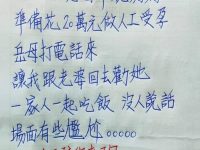 準備花20萬元做人工受孕
岳母打電話來
讓我跟老婆回去勸她
一家人一起吃飯 沒人說話
場面有些尷尬.....